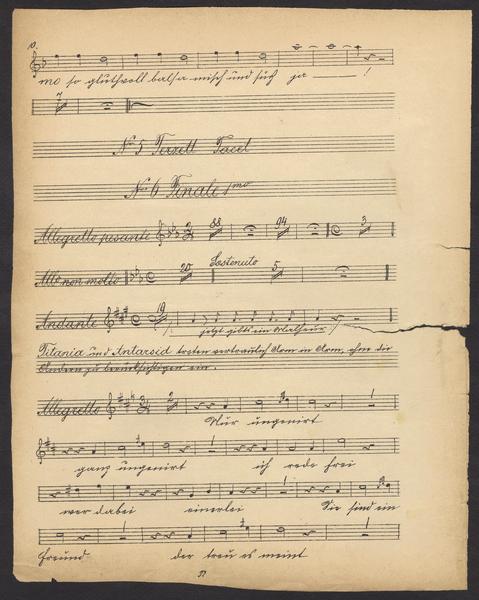 10.
mo so gluthvoll balsa-misch und süß ja !
7
No 5 Terzett Tacet
No 6 Finale 1mo
Allegretto pesante 88 94 3
Allo non molto 20 Sostenuto 5
Andante 19
jetzt gibts ein
Titania und treten vertraulich Arm in Arm, ohne die
Andern zu berücksichtigen ein.
Allegretto 2
Nur ungenirt
ganz ungenirt ich rede frei
wer dabei einerlei Sie sind ein
Freund der treu es meint